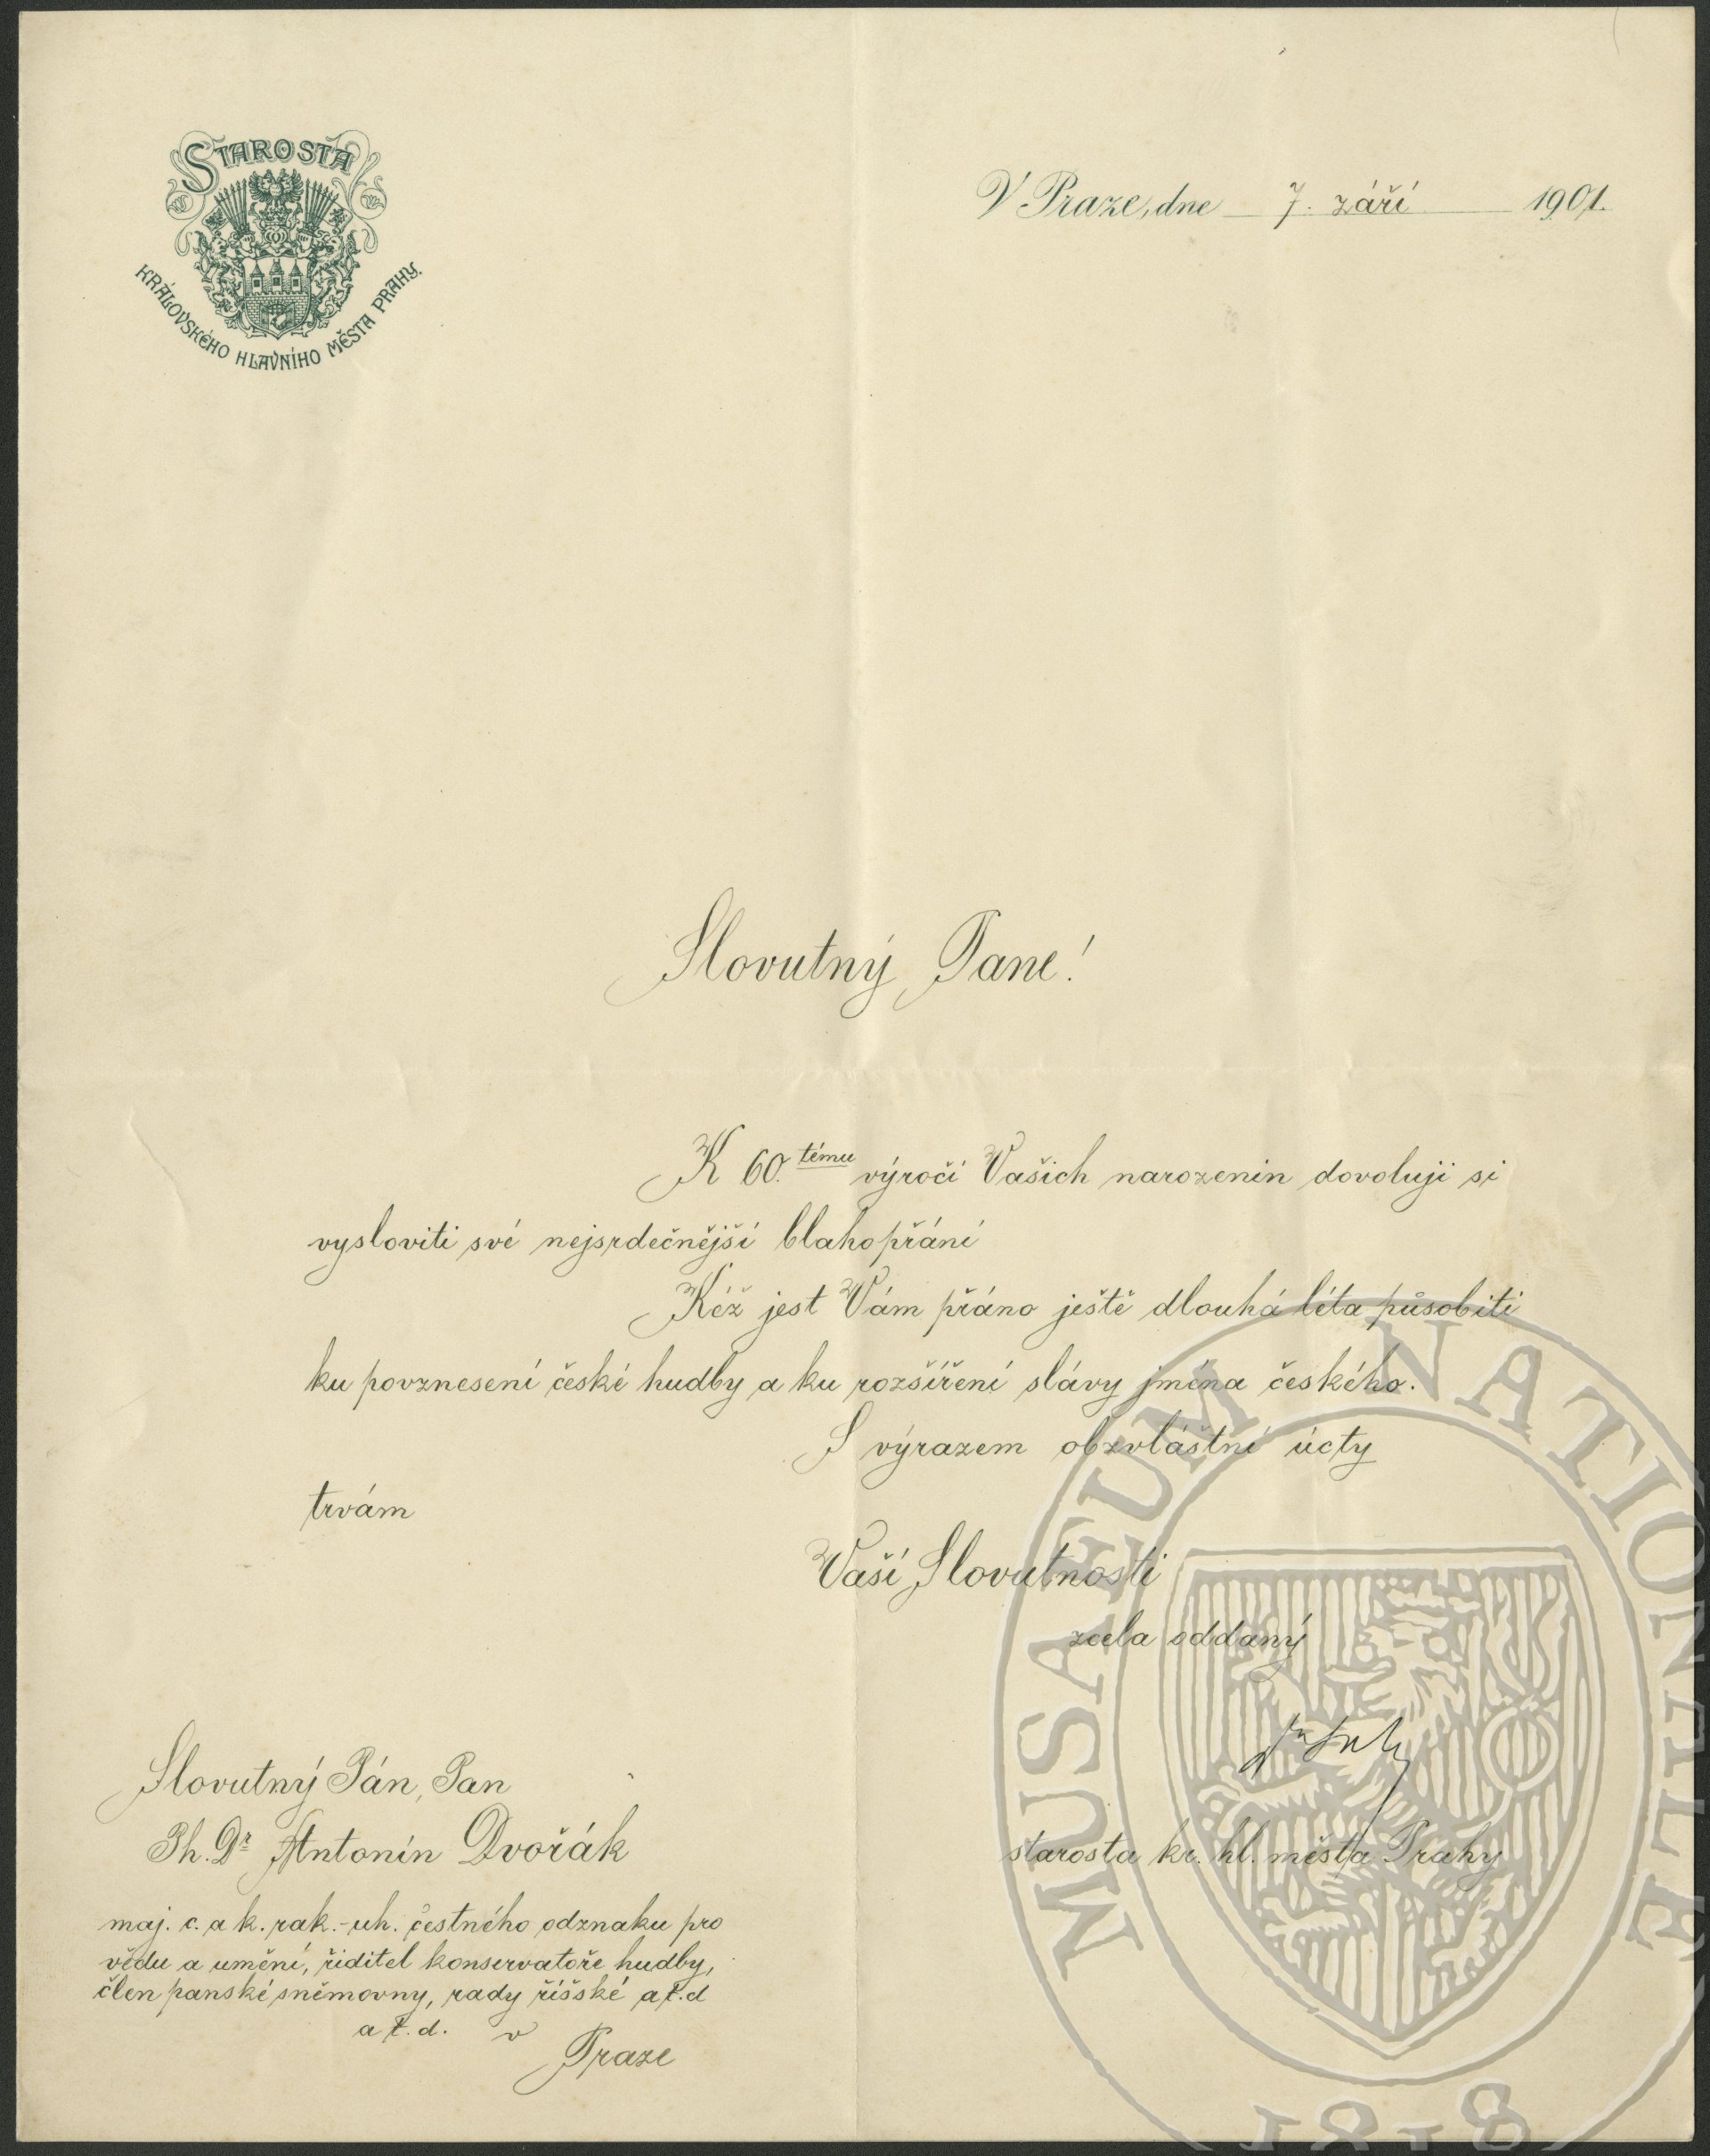 STAROSTA
KRÁLOVSKÉHO HLAVNÍHO MĚSTA PRAHY.
V Praze, dne 7. září 1901.
Slovutný Pane!
K 60.tému výročí Vašich narozenin dovoluji si
vysloviti své nejsrdečnější blahopřání
Kéž jest Vám přáno ještě dlouhá léta působiti
ku povznesení české hudby a ku rozšíření slávy jména českého.
S výrazem obzvláštní úcty
trvám
Vaší Slovutnosti
zcela oddaný
starosta kr. hl. města Prahy
Slovutný Pán, Pan
Ph. Dr Antonín Dvořák
maj. c. a k. rak.-uh. čestného odznaku pro
vědu a umění, řiditel konservatoře hudby,
člen panské sněmovny, rady říšské a t. d
a t. d. v
Praze
MUSAEUM NATIONALE
1818